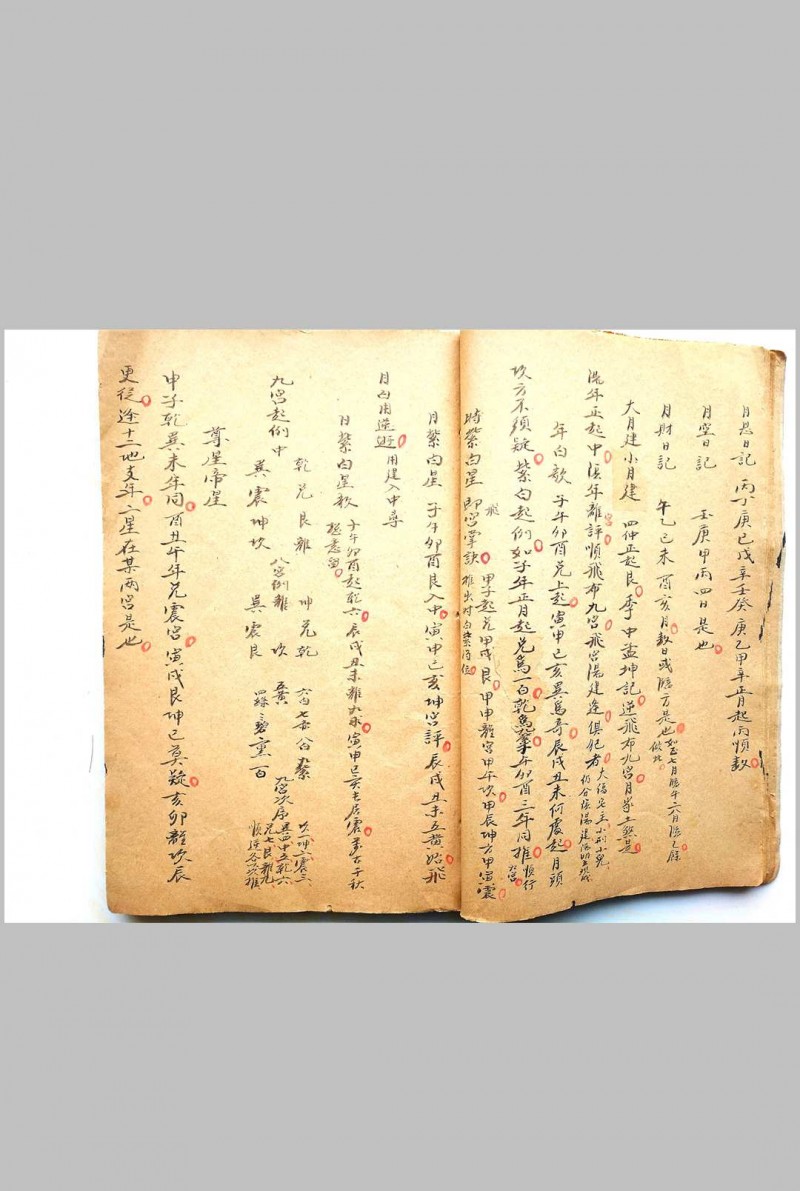 月忌日記 丙丁庚巳戊辛壬癸庚乙甲辛正月起丙順数
月空日記 壬庚甲丙四日是也
月財日記 午乙巳未酉亥月数日或臨方是也
大月建小月建 四仲正起艮季中孟坤記逆飛布九宮月家土煞是
流年正起中 年離評順飛布九宮飛宮陽建逢俱犯者
年白歌 子午卯酉兌上起寅申巳亥巽為奇辰戌丑未何處起月頭
坎方不須疑 紫白起例如子年正月起兌為一白乾為 年卯酉三年同推
順行九宮
時紫白星 飛 即宮掌訣 甲子起兌甲戌艮甲申離宮甲午坎甲辰坤方甲寅震
推出時白紫
月紫白星 子午卯酉艮入中寅申巳亥坤宮評辰戌丑未五黃始飛
月白用 遊用建入中尋
日紫白星歌 子午卯酉起乾六辰戌丑未離九求寅申巳亥 居震 古千秋
九宮起例中 乾兌艮離 巽震坤坎
八宮例離 坎 坤兌乾 巽震艮
五黃 六白七赤八白九紫
四綠三碧二黑一白
九宮次序 坎一坤二震三
巽四中五乾六
兌七艮八離九
尊星帝星
甲子乾巽未年同酉丑午年兌震宮寅戌艮坤巳莫疑亥卯離坎辰
更從 十二地支年二星在某兩宮是也